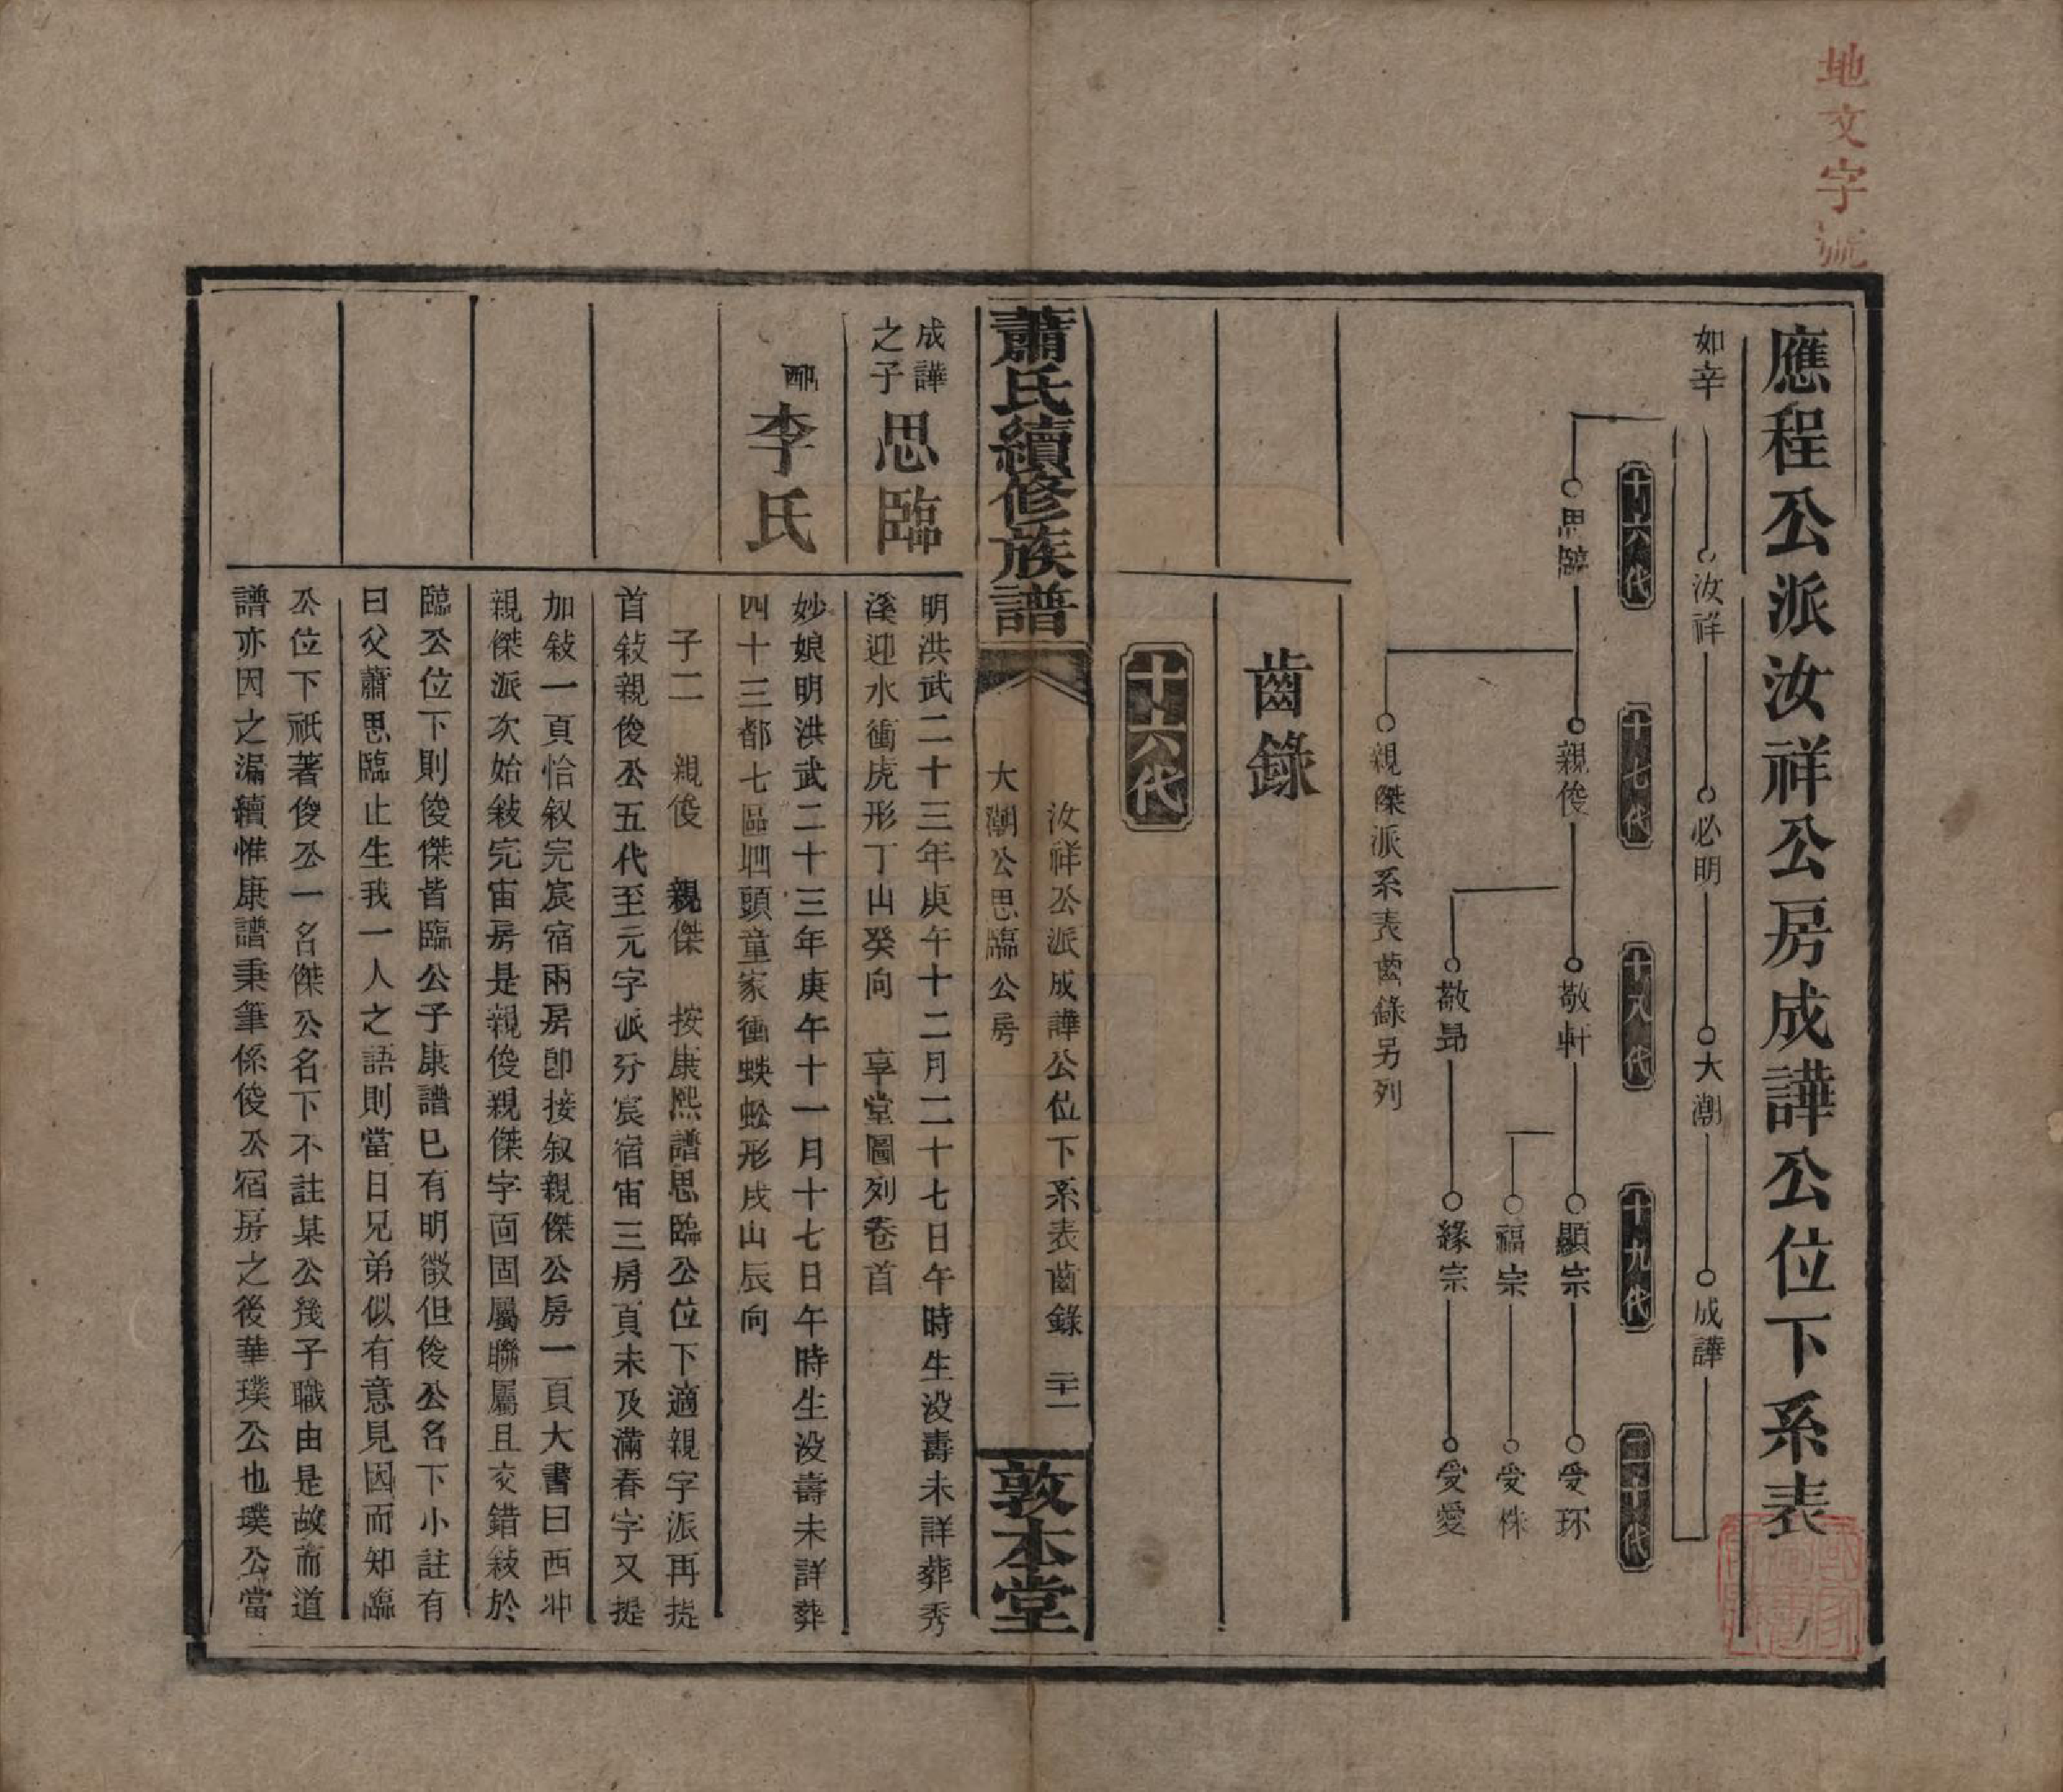 地文字號
應程公派汝祥公房成譁公位下系表
如辛
汝祥
必明
大潮
成譁
十六代
十七代
十八代
十九代
二十代
思臨
親俊
敬軒
顯宗
受环
福宗
受株
敬昻
緣宗
受愛
親傑派系表齒錄另列
齒錄
十六代
蕭氏續修族譜
汝祥公派成譁公位下系表齒錄 二十一
大潮公思臨公房
敦本堂
成譁
之子
思臨
明洪武二十三年庚午十二月二十七日午時生没壽未詳葬秀
溪迎水衝虎形丁山癸向 享堂圖列卷首
配
李氏
妙娘明洪武二十三年庚午十一月十七日午時生没壽未詳葬
四十三都七區垇頭童家衝蜈蚣形戌山辰向
子二 親俊 親傑 按康熙譜思臨公位下適親字派再提
首敍親俊公五代至元字派分宸宿宙三房頁未及滿春字又提
加敍一頁恰叙完宸宿兩房卽接叙親傑公房一頁大書曰西冲
親傑派次始敍完宙房是親俊親傑字面固屬聯屬且交錯敍於
臨公位下則俊傑皆臨公子康譜已有明徵但俊公名下小註有
曰父蕭思臨止生我一人之語則當日兄弟似有意見因而知臨
公位下祇著俊公一名傑公名下不註某公幾子職由是故而道
譜亦因之漏續惟康譜秉筆係俊公宿房之後華璞公也璞公當